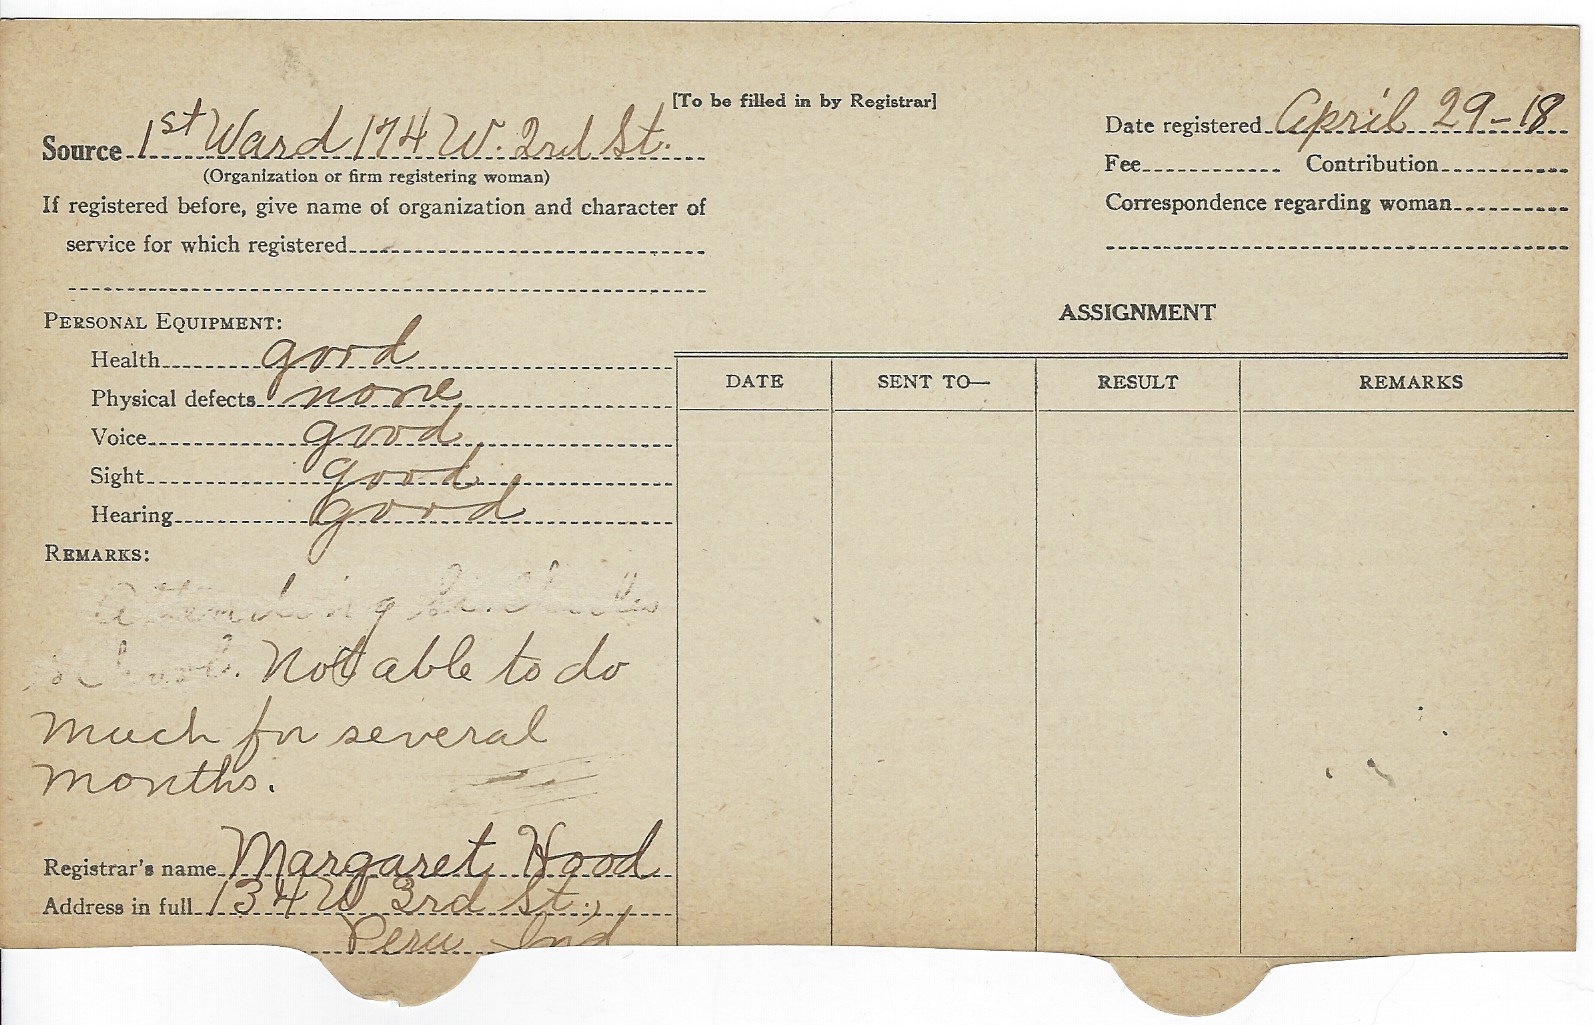 [To be filled in by Registrar]
Source 1st Ward 174 W. 2rd St.
(Organization or firm registering woman)
If registered before, give name of organization and character of
service for which registered
Date registered April 29-18
Fee Contribution
Correspondence regarding woman
PERSONAL EQUIPMENT:
Health good
Physical defects none
Voice good
Sight good
Hearing good
REMARKS:
Attending
school. Not able to do
much for several
months.
Registrar's name Margaret Hood
Address in full 134 W 3rd St.,
Peru Ind
ASSIGNMENT
DATE SENT TO— RESULT REMARKS